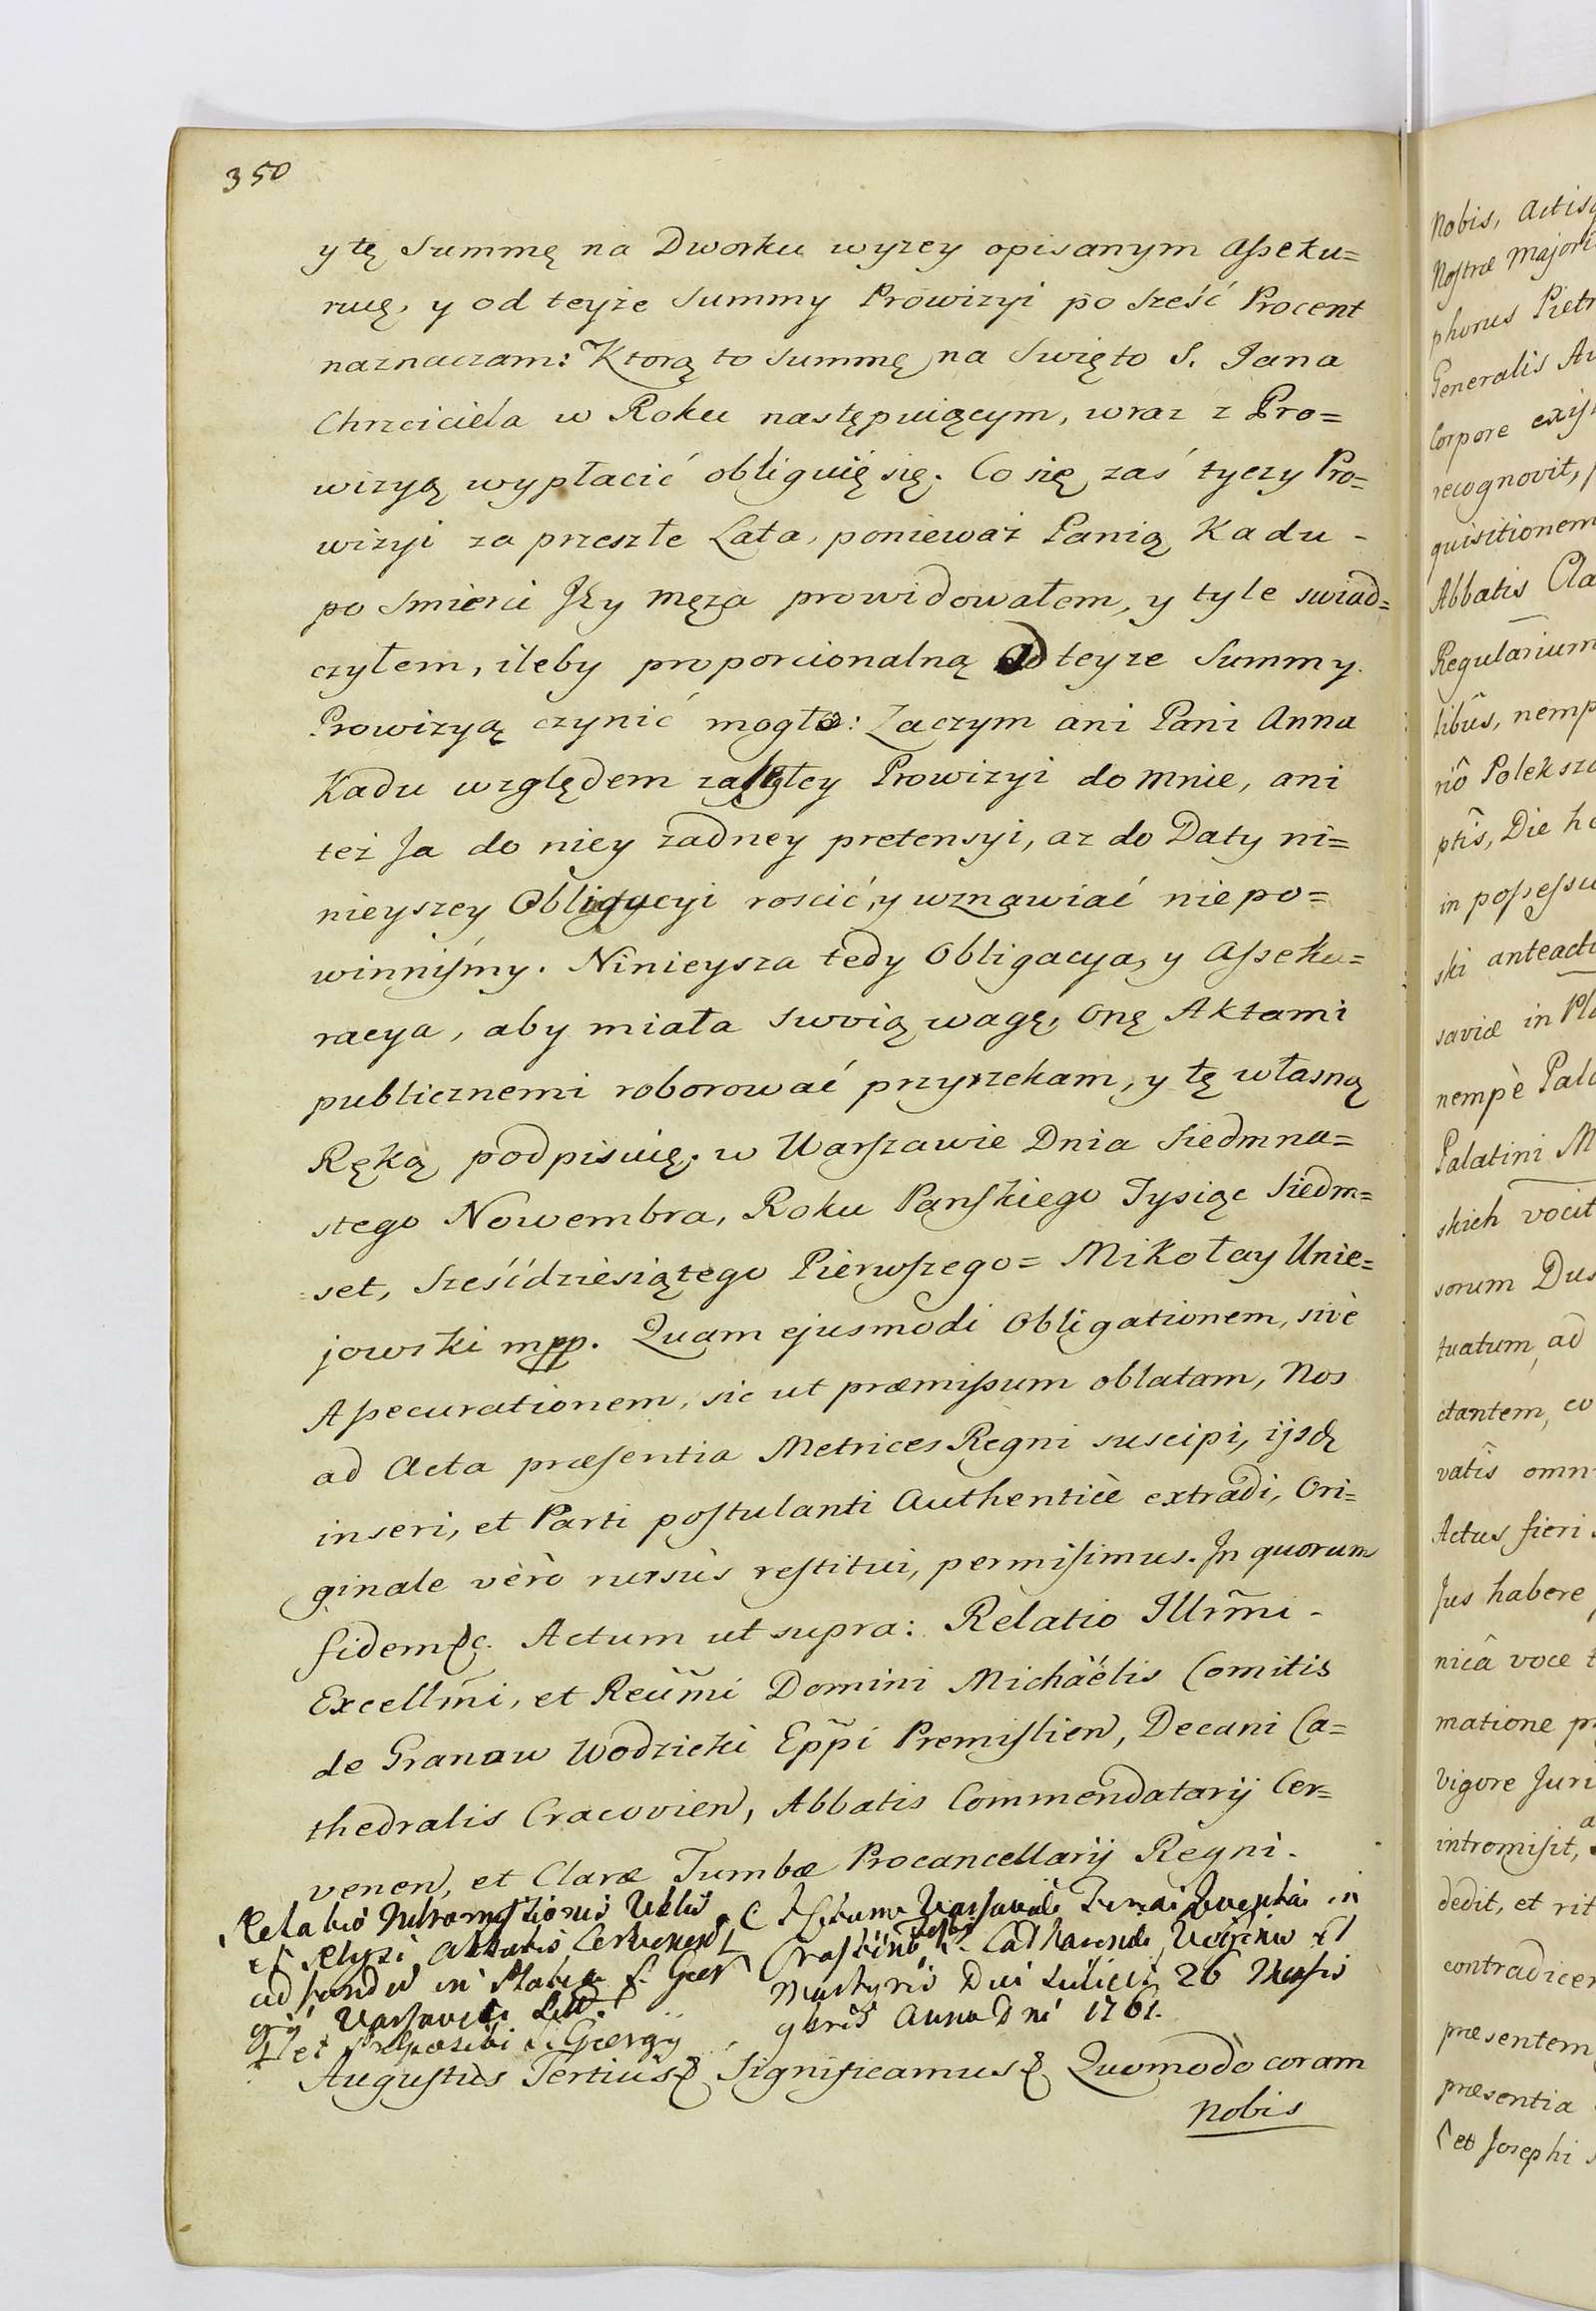 350
y tę Summę na Dworku wyzey opisanym asseku=
ruię, y od teyże Summy Prowizyi po sześć Procent
naznaczam: Ktorą to Summę na Swięto S. Jana
Chrzciciela w Roku następuiącym, wraz z Pro=
wizyą wypłacić obliguię się. Co się zaś tyczy Pro=
wizyi za przeszłe Lata, ponieważ Panią Kadu -
po Smierci Jey męża prowidowałem, y tyle swiad=
czyłem, ileby proporcionalną od teyze Summy
Prowizyą czynić mogło: Zaczym ani Pani Anna
Kadu względem zaległey Prowizyi do mnie, ani
też Ja do niey żadney pretensyi, az do Daty ni=
nieyszey Obligacyi roscić, y wznawiać nie po=
winnismy. Ninieysza tedy Obligacya, y Asseku=
racya, aby miała swoią wagę, onę Aktami
publicznemi roborować przyrzekam, y tę własną
Ręką podpisuię. w Warszawie Dnia Siedmna=
stego Nowembra, Roku Panskiego Tysiąc Siedm=
set, Sześćdziesiątego Pierwszego = Mikołay Unie=
jowski mpp. Quam ejusmodi Obligationem, sivè
Assecurationem, sic ut præmissum oblatam, Nos
ad Acta præsentia Metrices Regni suscipi, ijsdq
inseri, et Parti postulanti Authenticè extradi, Ori=
ginale verò rursùs restitui, permisimus. In quorum
fidem &c. Actum ut supra: Relatio Illrm̃i -
Excellm̃i, et Reũmi Domini Michäélis Comitis
de Granow Wodzicki Epp̃i Premislien, Decani Ca=
thedralis Cracovien, Abbatis Commendatarij Cer=
venen, et Claræ Tumbæ Procancellarij Regni.
Relatio Intromissionis
et Abbatis Cervenen
ad in Platea S. Geor
gij Varsaviæ
et Præposito S. Georgij
Actum Varsaviæ in
Crastino festi S. Catharinæ Virginis et
Martyris Die 26 Mensis
9bris Anno Dni 1761.
Augustus Tertius & Significamus & Quomodò coram
nobis
Nobis, Actisq
Nostræ Majori
phorus Pietr
Generalis Au
Corpore exis
recognovit,
quisitionem
Abbatis Cla
Regularium
libûs, nemp
riô Poleksz
ptis, Die ho
in possessio
ski anteact
saviæ in Pla
nempè Pala
Palatini M
skich vocit
sorum Dus
tuatum, ad
ctantem, co
vatîs omn
Actus fieri
Jus habere
nicâ voce
matione p
Vigore Juri
intromisit,
dedit, et rit
contradicen
præsentem
præsentia
et Josephi